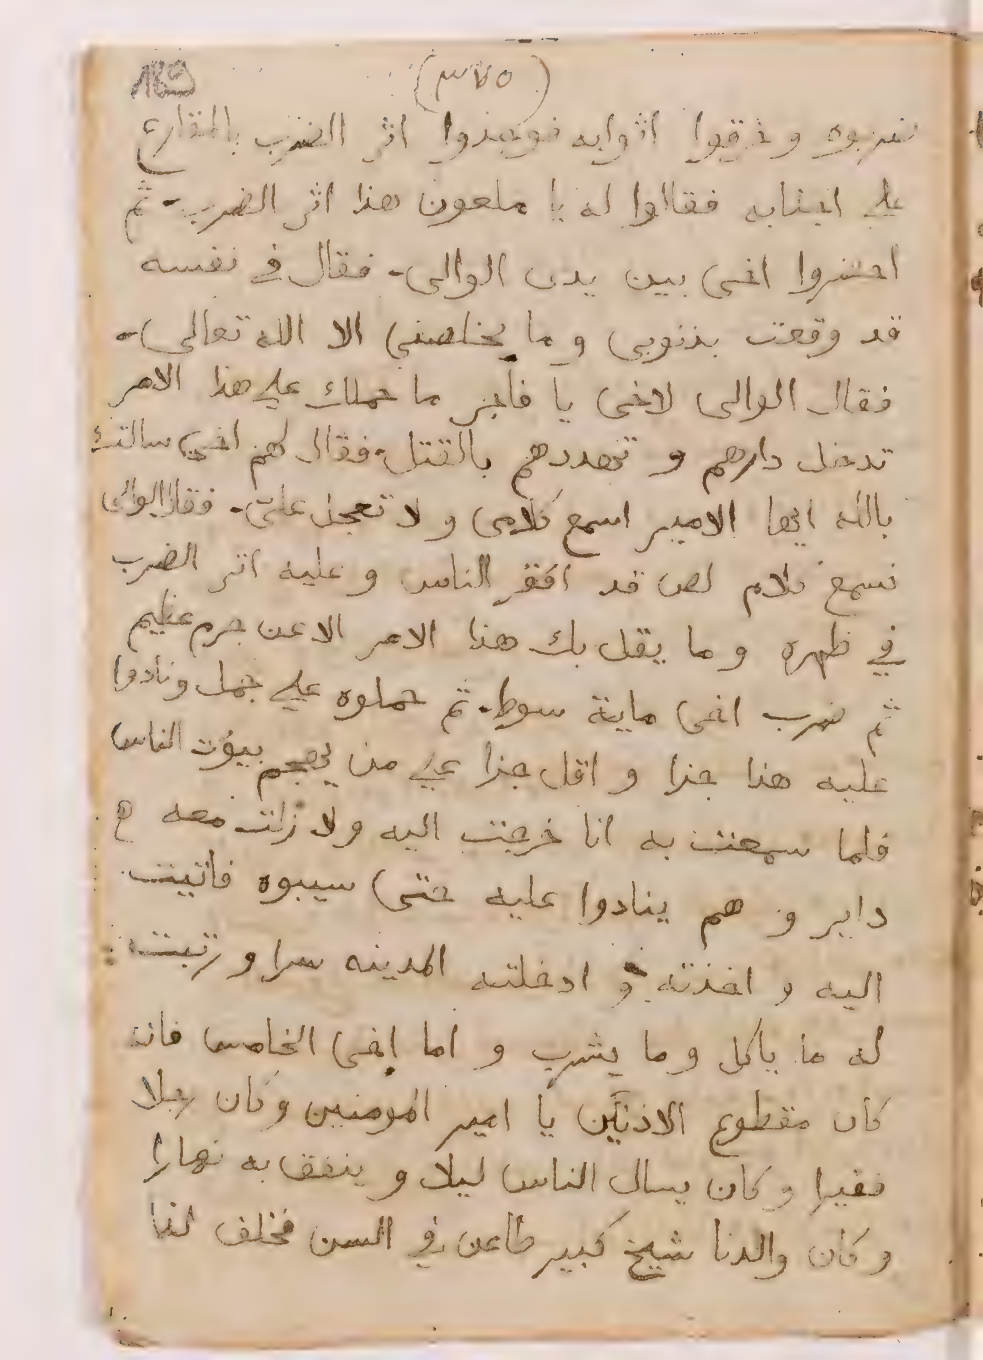 (٣٧٥)
189
ضربوه و خرقوا اثوابه فوجدوا اثر الضرب بالمقارع
على اجنابه فقالوا له يا ملعون هذا اثر الضرب. ثم
احضروا اخى بين يدى الوالى. فقال في نفسه
قد وقعت بذنوبى و ما يخلصنى الا الله تعالى.
فقال الوالى لاخى يا فاجر ما حملك على هذا الامر
تدخل دارهم و تهددهم بالقتل. فقال لهم اخى سالتك
بالله ايها الامير اسمع كلامى و لا تعجل على. فقال الوالى
نسمع كلام لص قد افقر الناس و عليه اثر الضرب
في ظهره و ما يقل بك هذا الامر الا عن جرم عظيم
ثم ضرب اخى ماية سوط. ثم حملوه على جمل و نادوا
عليه هذا جزا و اقل جزا على من يهجم بيوت الناس
فلما سمعت به انا خرجت اليه ولا زلت معه
داير و هم ينادوا عليه حتى سيبوه فاتيت
اليه و اخذته و ادخلته المدينه سرا و رتبت
له ما ياكل و ما يشرب و اما اخى الخامس فانه
كان مقطوع الاذنين يا امير المومنين و كان رجلا
فقيرا و كان يسال الناس ليلا و ينفق به نهارا
و كان والدنا شيخ كبير طاعن في السن فخلف لنا